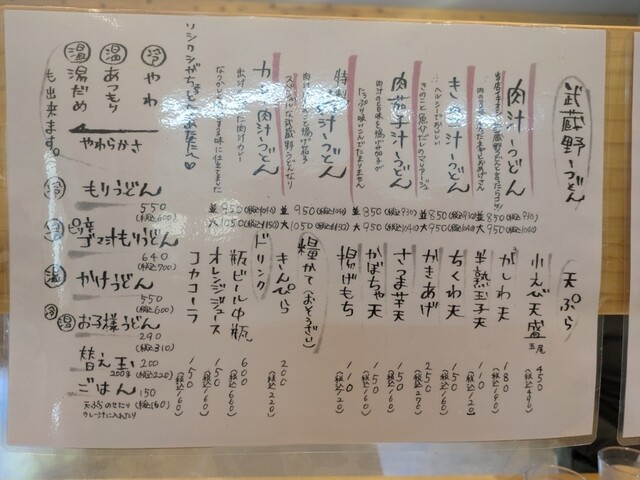 武蔵野うどん
肉汁うどん
並 850(税込930)
大 950(税込1040)
きのこ肉汁うどん
ヘルシーでおいしい
きのこと魚介だしのマリアージュ
並 850(税込930)
大 950(税込1040)
肉茄子汁うどん
並 850(税込930)
大 950(税込1040)
特製肉汁うどん
たっぷり味わいこんでたまりません
並 950(税込1040)
大 1050(税込1150)
カレー肉汁うどん
なつかしさのする味に仕立てました
並 950(税込1040)
大 1050(税込1150)
ソシクシがちょっとお客たへ
冷 やわ
温 あつもり
温 湯だめ
も出来ます。
やわらかさ
もりうどん
550
(税込600)
ゴマ汁もりうどん
640
(税込700)
かけうどん
550
(税込600)
お子様うどん
290
(税込310)
替え玉 200
200g (税込220)
ごはん 150
(税込160)
天ぷらのせたり
カレー汁に入れたり
天ぷら
小えび天盛 五尾 450(税込490)
かしわ天 180(税込190)
半熟玉子天 110(税込120)
ちくわ天 150(税込160)
かきあげ 250(税込270)
さつま芋天 150(税込160)
かぼちゃ天 150(税込160)
揚げもち 110(税込120)
糧かて(おそうざい)
きんぴら 200(税込220)
ドリンク
瓶ビール中瓶 600(税込660)
オレンジジュース 150(税込160)
コカコーラ 150(税込160)